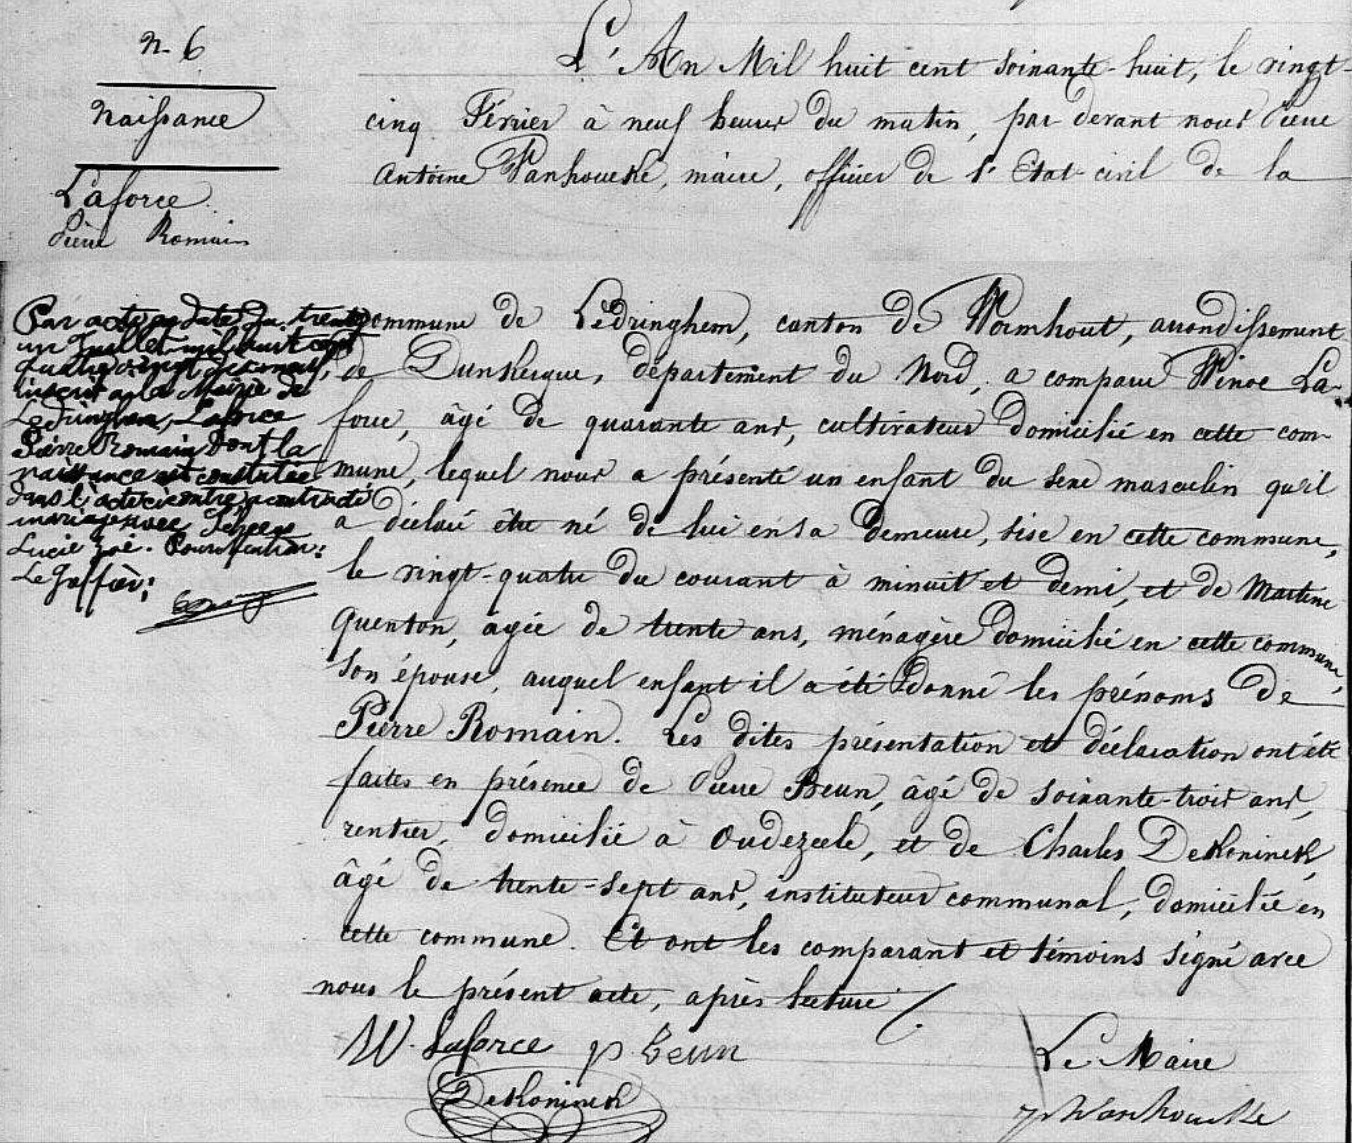 n. 6
Naissance
Laforce
Pierre Romain
L'An Mil huit cent soixante-huit, le vingt-
cinq Février à neuf heures du matin, par devant nous Pierre
Antoine Vanhoucke, maire, officier de l'Etat-civil de la
commune de Lédringhem, canton de Wormhout, arrondissement
de Dunkerque, département du Nord, a comparu Winoc La-
force, âgé de quarante ans, cultivateur domicilié en cette com-
mune, lequel nous a présenté un enfant du sexe masculin qu'il
a déclaré être né de lui en sa demeure, sise en cette commune,
le vingt-quatre du courant à minuit et demi, et de Martine
Quenton, âgée de trente ans, ménagère domicilié en cette commune,
son épouse, auquel enfant il a été donné les prénoms de
Pierre Romain. Les dites présentation et déclaration ont été
faites en présence de Pierre Beun, âgé de soixante-trois ans,
rentier, domicilié à Oudezeele, et de Charles DeKoninck,
âgé de trente-sept ans, instituteur communal, domicilié en
cette commune. Et ont les comparant et témoins signé avec
nous le présent acte, après lecture.
Par acte en date du trente
un Juillet mil huit cent
quatre vingt dix neuf,
inscrit à la Mairie de
Ledringhem, Laforce
Pierre Romain dont la
naissance est constatée
dans l'acte ci contre a contracté
mariage avec
Lucie Zoé. Pour mention:
Le Greffier:
W. Laforce P. Beun
DeKoninck
Le Maire
P Vanhoucke